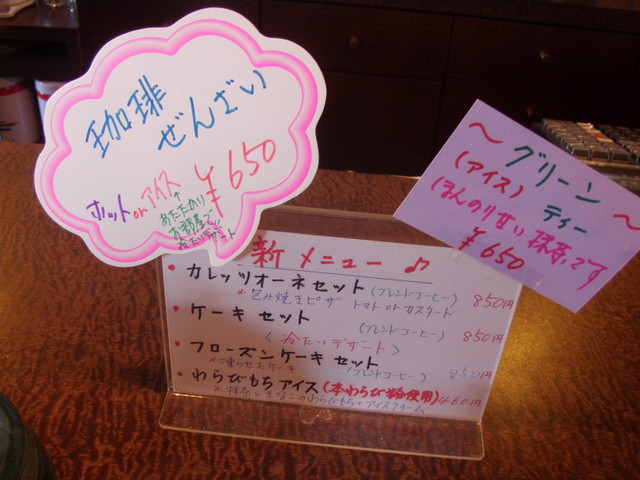 珈琲
ぜんざい
ホット or アイス ¥650
↑
あたたかい
お部屋で
冷たいデザート
～グリーン
(アイス) ティー
ほんのり甘い抹茶です
¥650
新メニュー♪
・カレッツオーネセット (ブレンドコーヒー) 850円
※包み焼きピザ トマト or カスタード
・ケーキセット (ブレンドコーヒー) 850円
<冷たいデザート>
・フローズンケーキセット
※凍らせたケーキ (ブレンドコーヒー) 850円
・わらびもちアイス (本わらび粉使用) 460円
※抹茶ときなこのわらびもち+アイスクリーム